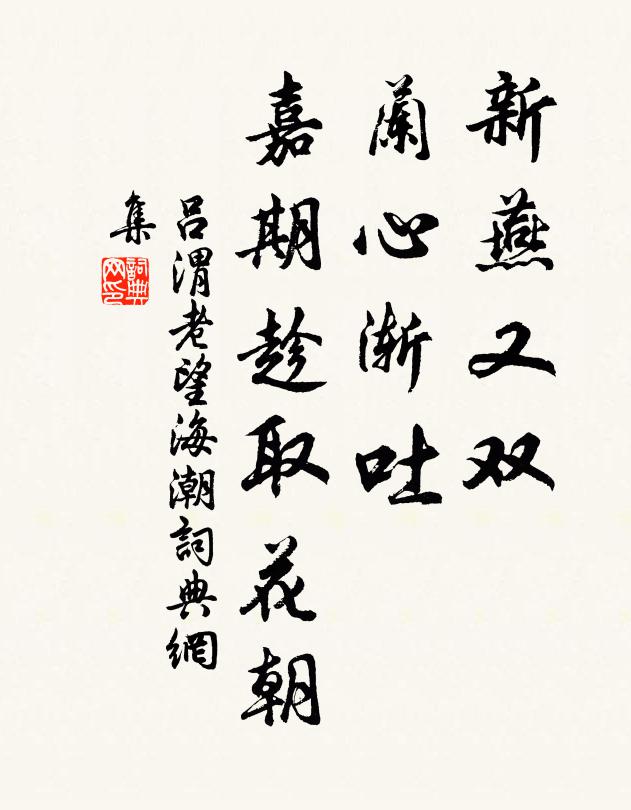 新燕又双
蘭心渐吐
嘉期趁取花朝
吕渭老望海潮詞典網
集
詞典
网印